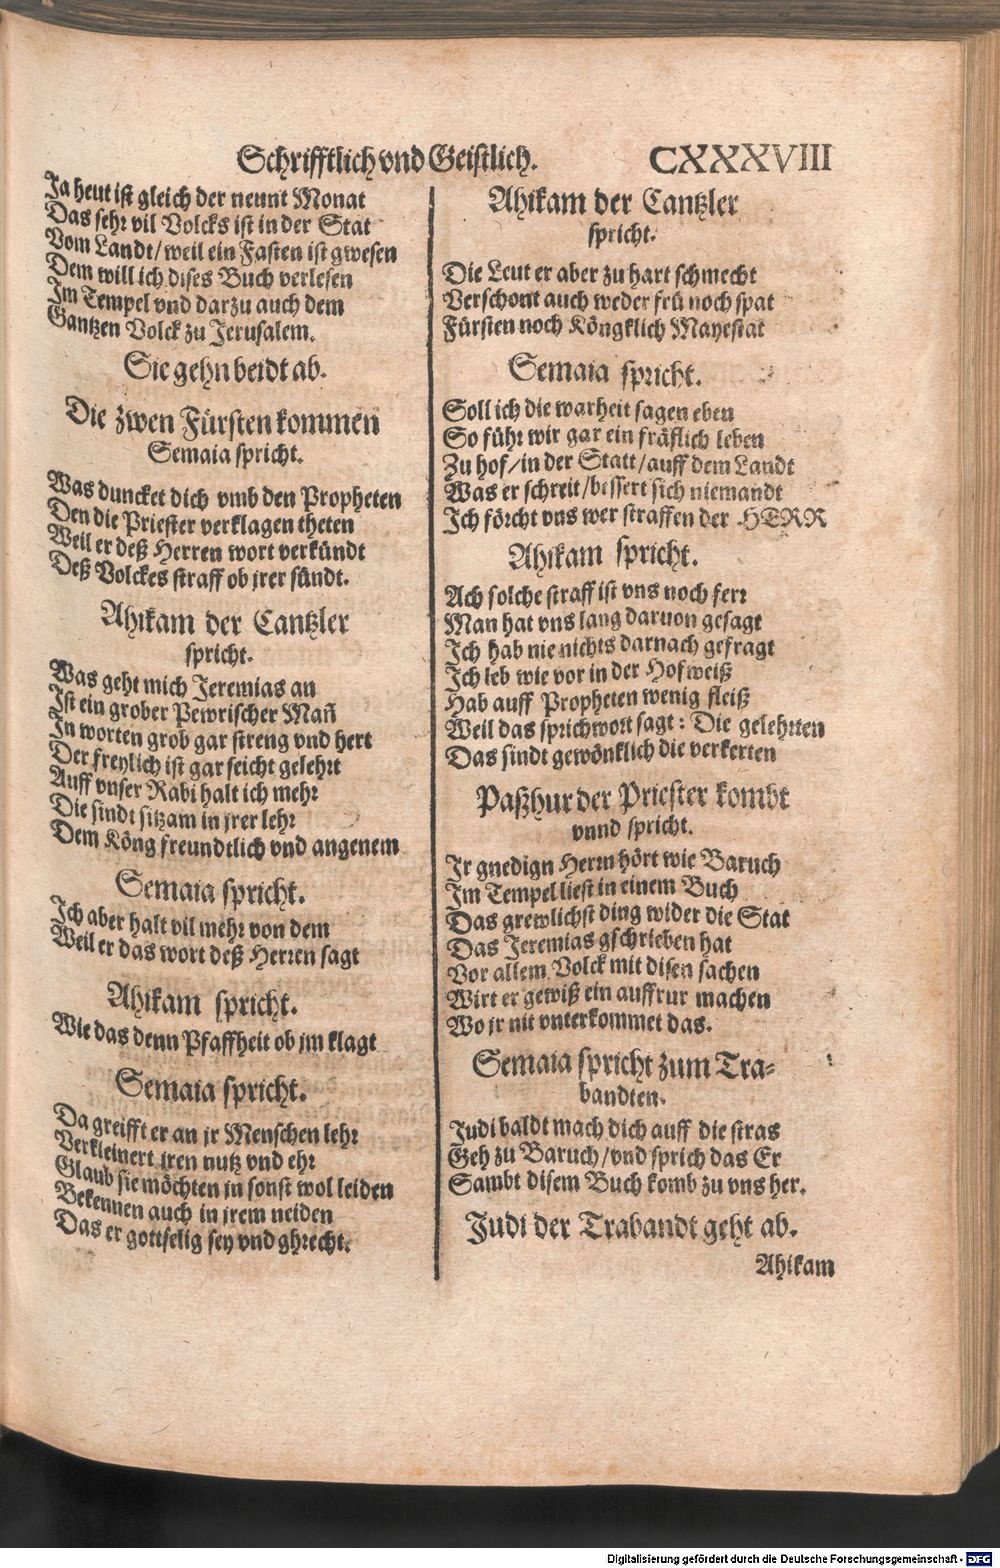 Schrifftlich vnd Geistlich. CXXXVIII
Ja heut ist gleich der neunt Monat
Das sehr vil Volcks ist in der Stat
Vom Landt/ weil ein Fasten ist gwesen
Dem will ich dises Buch verlesen
Im Tempel vnd darzu auch dem
Gantzen Volck zu Jerusalem.
Sie gehn beidt ab.
Die zwen Fürsten kommen
Semaia spricht.
Was duncket dich vmb den Propheten
Den die Priester verklagen theten
Weil er deß Herren wort verkündt
Deß Volckes straff ob jrer sündt.
Ahikam der Cantzler
spricht.
Was geht mich Jeremias an
Ist ein grober Pewrischer Mañ
In worten grob gar streng vnd hert
Der freylich ist gar seicht gelehrt
Auff vnser Rabi halt ich mehr
Die sindt sitzam in jrer lehr
Dem Köng freundtlich vnd angenem
Semaia spricht.
Ich aber halt vil mehr von dem
Weil er das wort deß Herren sagt
Ahikam spricht.
Wie das denn Pfaffheit ob jm klagt
Semaia spricht.
Da greifft er an jr Menschen lehr
Verkleinert jren nutz vnd ehr
Glaub sie möchten jn sonst wol leiden
Bekennen auch in jrem neiden
Das er gottselig sey vnd ghrecht.
Ahikam der Cantzler
spricht.
Die Leut er aber zu hart schmecht
Verschont auch weder frü noch spat
Fürsten noch Köngklich Mayestat
Semaia spricht.
Soll ich die warheit sagen eben
So führ wir gar ein fräflich leben
Zu hof/in der Statt/auff dem Landt
Was er schreit/bessert sich niemandt
Ich förcht vns wer straffen der HERR
Ahikam spricht.
Ach solche straff ist vns noch ferr
Man hat vns lang daruon gesagt
Ich hab nie nichts darnach gefragt
Ich leb wie vor in der Hofweiß
Hab auff Propheten wenig fleiß
Weil das sprichwort sagt: Die gelehrten
Das sindt gewönklich die verkerten
Paßhur der Priester kombt
vnnd spricht.
Jr gnedign Herrn hört wie Baruch
Im Tempel liest in einem Buch
Das grewlichst ding wider die Stat
Das Jeremias gschrieben hat
Vor allem Volck mit disen sachen
Wirt er gewiß ein auffrur machen
Wo jr nit vnterkommet das.
Semaia spricht zum Tra-
bandten.
Judi baldt mach dich auff die stras
Geh zu Baruch/vnd sprich das Er
Sambt disem Buch komb zu vns her.
Judi der Trabandt geht ab.
Ahikam
Digitalisierung gefördert durch die Deutsche Forschungsgemeinschaft - DFG